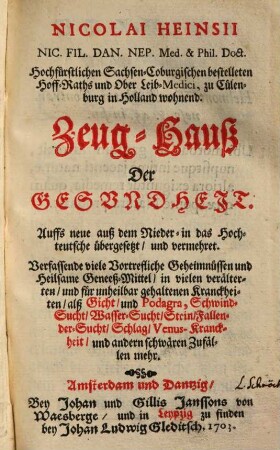 NICOLAI HEINSII
NIC. FIL. DAN. NEP. Med. & Phil. Doct.
Hochfürstlichen Sachsen-Coburgischen bestelleten
Hoff-Raths und Ober Leib-Medici, zu Cülen-
burg in Holland wohnend.
Zeug-Hauß
Der
GESVNDHEJT.
Auffs neue auß dem Nieder- in das Hoch-
teutsche übergesetzt/ und vermehret.
Verfassende viele Vortrefliche Geheimnüssen und
Heilsame Geneeß-Mittel/ in vielen verälter-
ten/ und für unheilbar gehaltenen Kranckhei-
ten/ alß Gicht/ und Podagra, Schwind-
Sucht/ Wasser-Sucht/ Stein/ Fallen-
der-Sucht/ Schlag/ Venus-Kranck-
heit/ und andern schwären Zufäl-
len mehr.
Amsterdam und Dantzig/
Bey Johan und Gillis Janssons von
Waesberge/ und in Leypzig zu finden
bey Johan Ludwig Gleditsch. 1703.